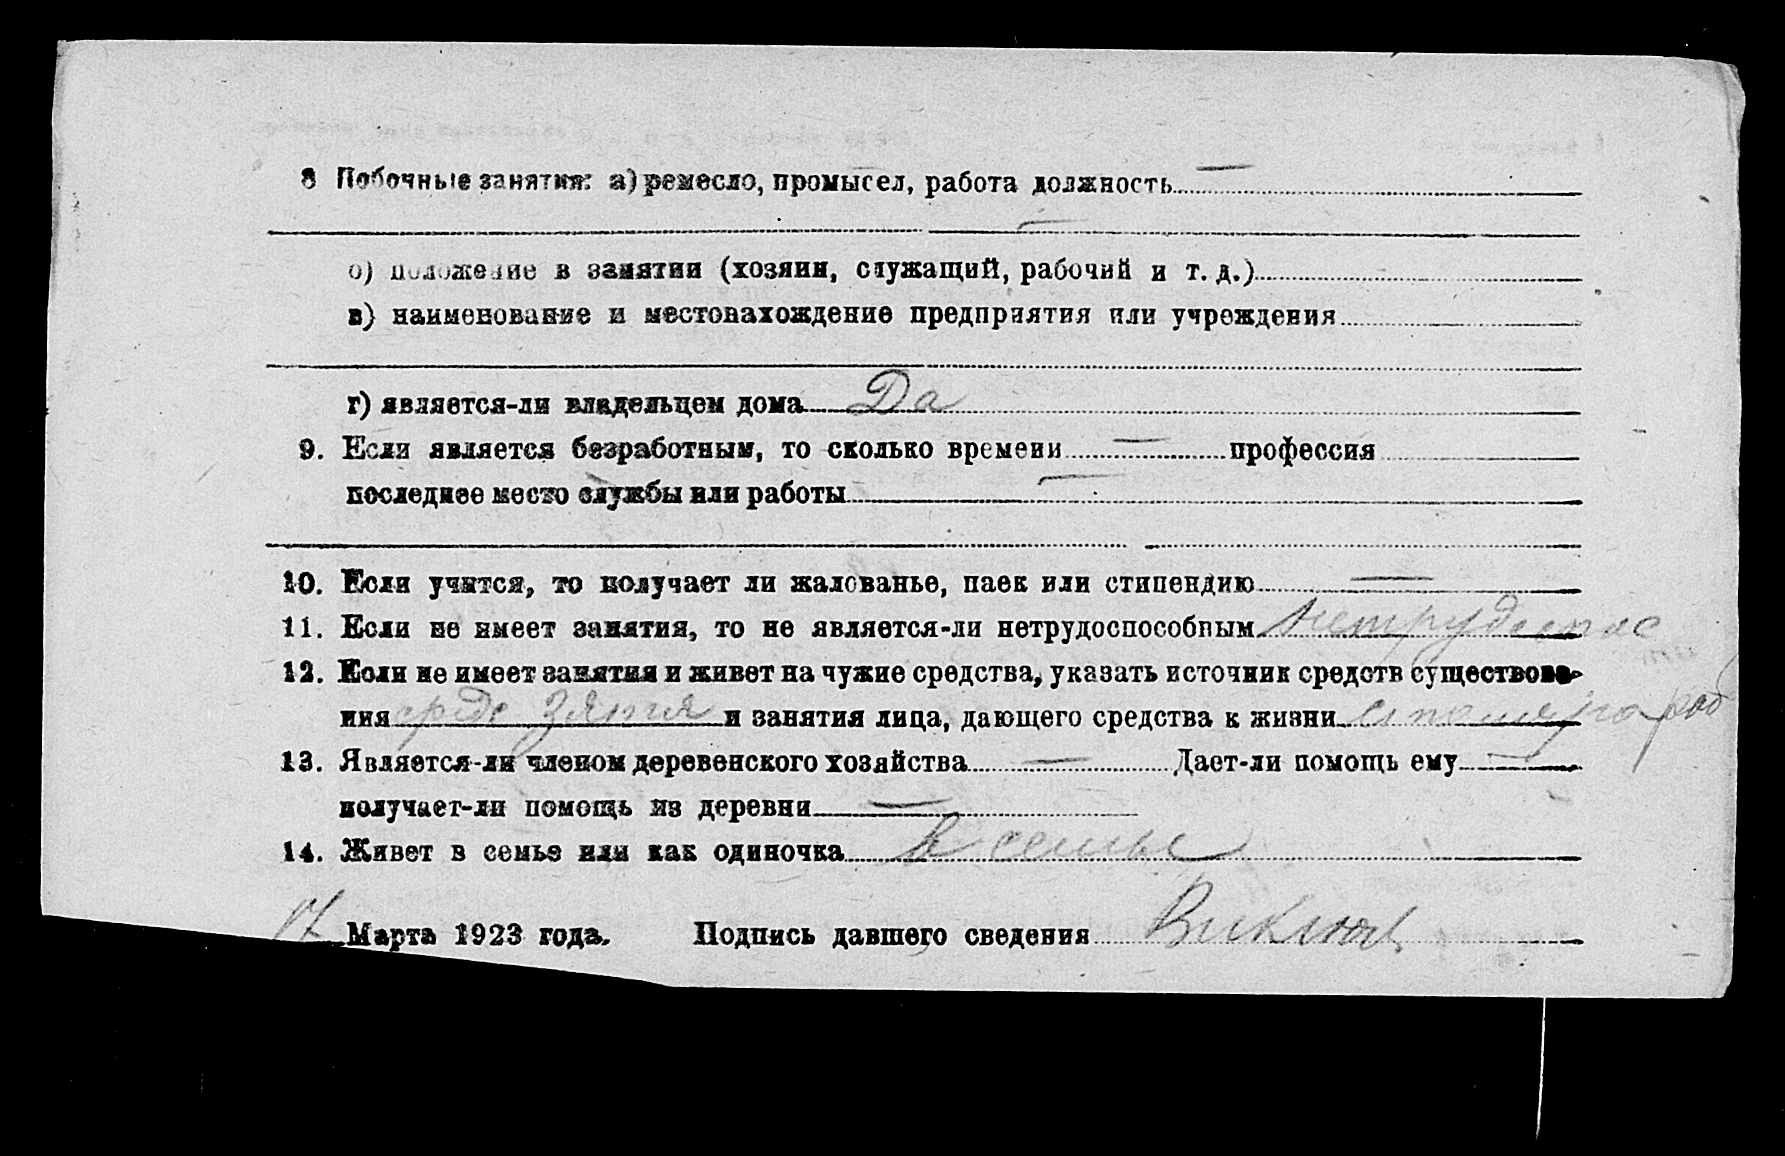 8 Побочные занятия: а) ремесло, промысел, работа должность —
—
о) положение в занятии (хозяин, служащий, рабочий и т. д.)
в) наименование и местонахождение предприятия или учреждения
г) является-ли владельцем дома Да
9. Если является безработным, то сколько времени — профессия
последнее место службы или работы —
10. Если учится, то получает ли жалованье, паек или стипендию —
11. Если не имеет занятия, то не является-ли нетрудоспособным нетрудоспос
12. Если не имеет занятия и живет на чужие средства, указать источник средств существова-
ния сред зятя и занятия лица, дающего средства к жизни
13. Является-ли членом деревенского хозяйства — Дает-ли помощь ему —
получает-ли помощь из деревни —
14. Живет в семье или как одиночка в семье
17 Марта 1923 года. Подпись давшего сведения